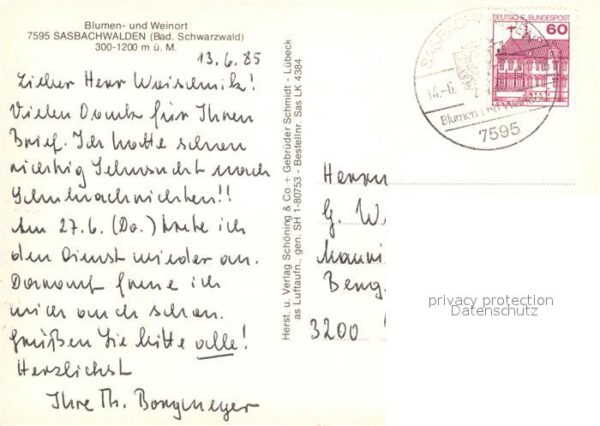 Blumen- und Weinort
7595 SASBACHWALDEN (Bad. Schwarzwald)
300-1200 m ü. M.
13.6.85
Lieber Herr
Vielen Dank für Ihren
Brief. Ich hatte schon
richtig Sehnsucht nach
Schulnachrichten!!
Am 27.6. (Do.) trete ich
den Dienst wieder an.
Darauf freue ich
mich auch schon.
Grüßen Sie bitte alle!
Herzlichst
Ihre Th.
Herst. u. Verlag Schöning & Co + Gebrüder Schmidt - Lübeck
as Luftaufn., gen. SH 1-80753 - Bestellnr. Sas LK 4384
DEUTSCHE BUNDESPOST
60
SASBACHW
-6.
Blumen
7595
Herrn
G. W
Beng.
3200
privacy protection
Datenschutz